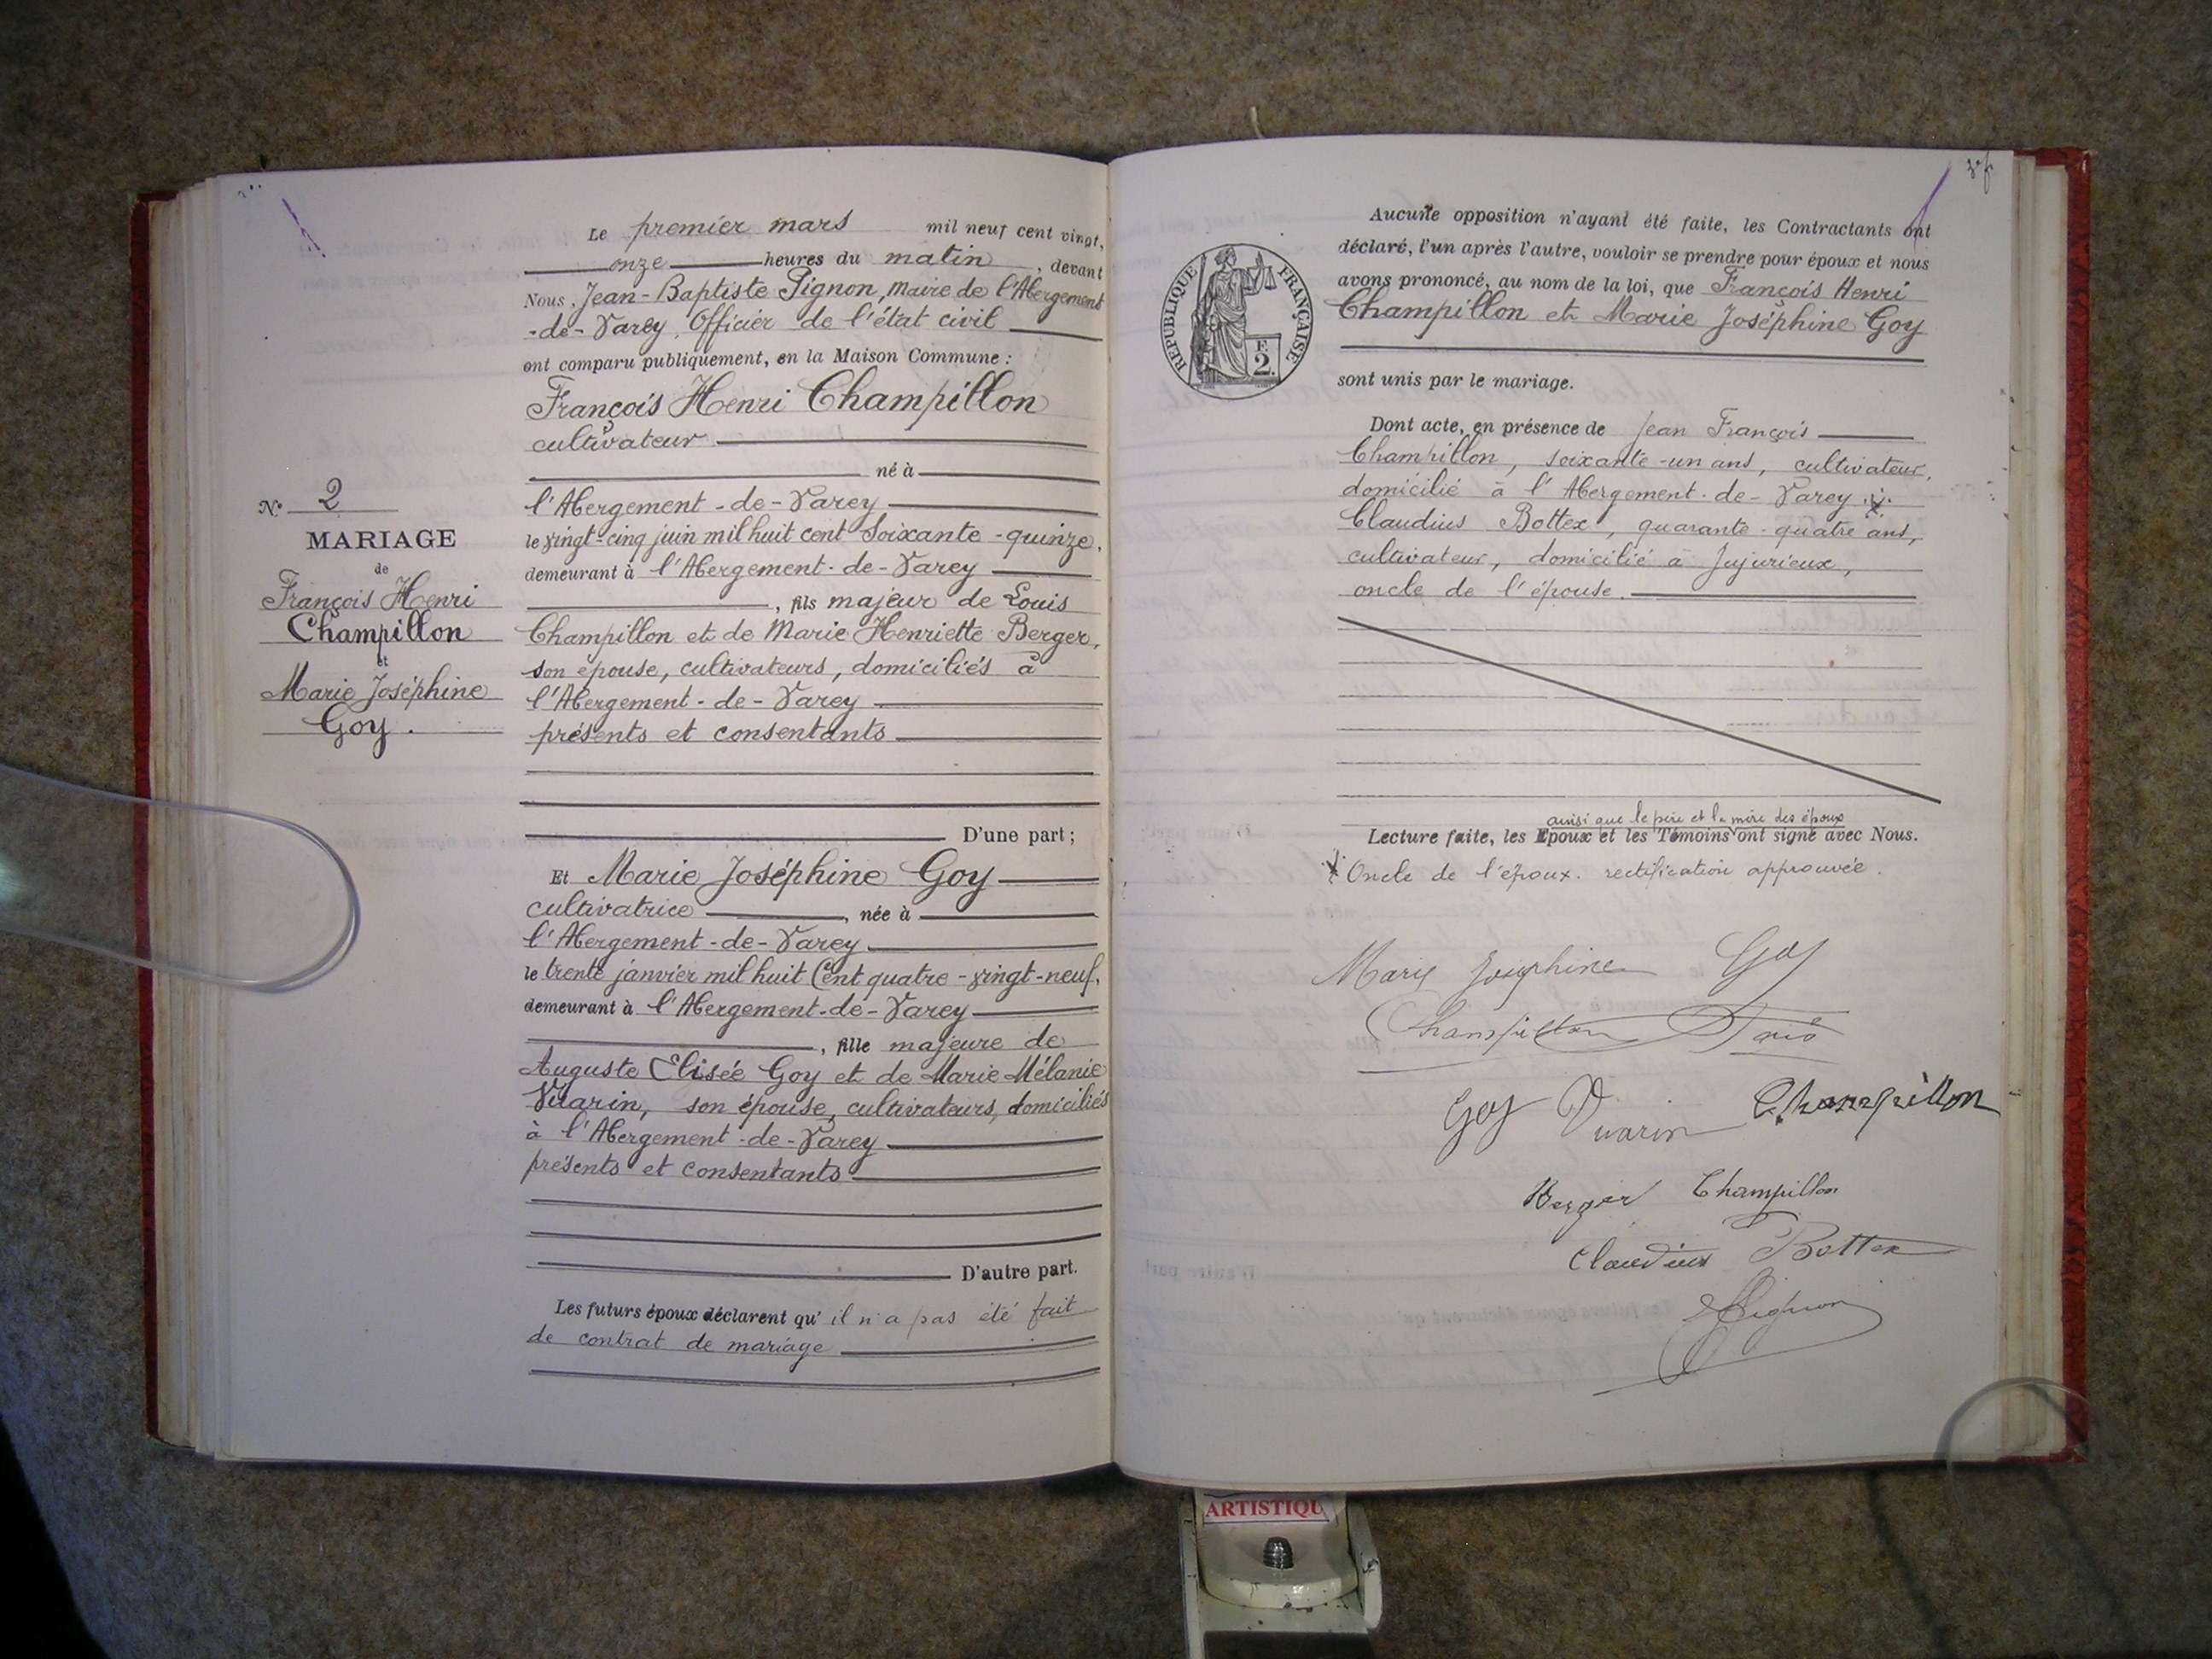 Le premier mars mil neuf cent vingt,
onze heures du matin, devant
Nous, Jean-Baptiste Pignon, Maire de l'Abergement
-de-Varey, Officier de l'état civil
ont comparu publiquement, en la Maison Commune :
François Henri Champillon
cultivateur
né à
l'Abergement-de-Varey
le vingt-cinq juin mil huit cent soixante-quinze,
demeurant à l'Abergement-de-Varey
, fils majeur de Louis
Champillon et de Marie Henriette Berger,
son épouse, cultivateurs, domiciliés à
l'Abergement-de-Varey
présents et consentants
D'une part ;
N° 2
MARIAGE
de
François Henri
Champillon
et
Marie Joséphine
Goy.
Et Marie Joséphine Goy
cultivatrice, née à
l'Abergement-de-Varey
le trente janvier mil huit cent quatre-vingt-neuf,
demeurant à l'Abergement-de-Varey
, fille majeure de
Auguste Elisée Goy et de Marie Mélanie
Vuarin, son épouse, cultivateurs, domiciliés
à l'Abergement-de-Varey
présents et consentants
D'autre part.
Les futurs époux déclarent qu'il n'a pas été fait
de contrat de mariage
Aucune opposition n'ayant été faite, les Contractants ont
déclaré, l'un après l'autre, vouloir se prendre pour époux et nous
avons prononcé, au nom de la loi, que François Henri
Champillon et Marie Joséphine Goy
sont unis par le mariage.
RÉPUBLIQUE FRANÇAISE
F.
2.
Dont acte, en présence de Jean François
Champillon, soixante-un ans, cultivateur,
domicilié à l'Abergement-de-Varey
Claudius Bottex, quarante-quatre ans,
cultivateur, domicilié à Jujurieux,
oncle de l'épouse.
ainsi que le père et la mère des époux
Lecture faite, les Epoux et les Témoins ont signé avec Nous.
Oncle de l'époux. rectification approuvée.
Marie Josephine Goy
Champillon
Goy Vuarin Champillon
Berger Champillon
Claudius Bottex
Pignon
ARTISTIQU